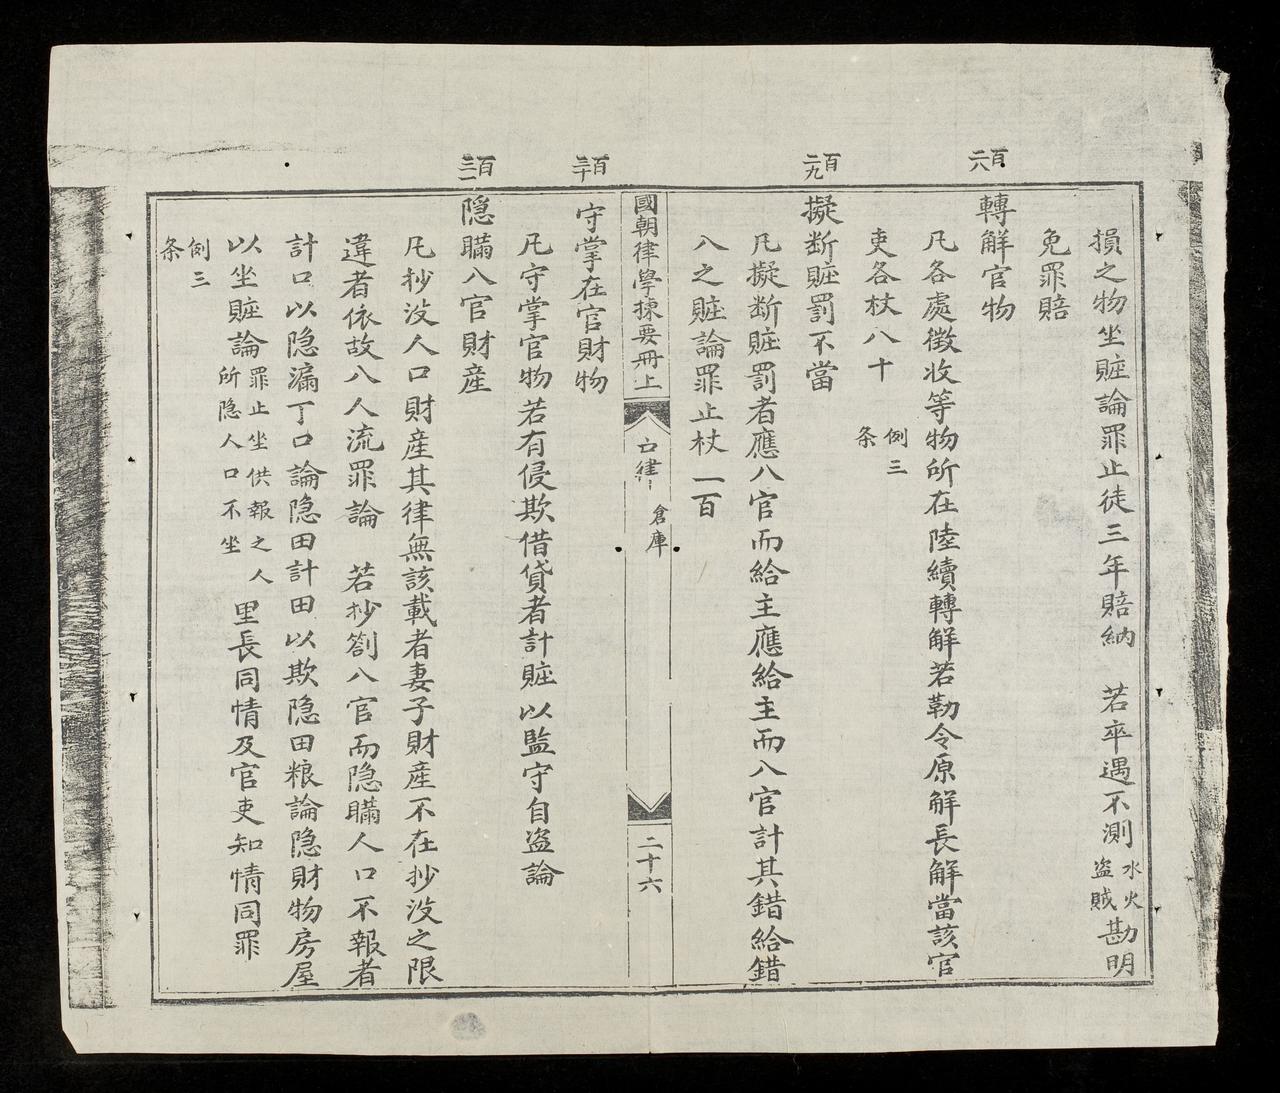 損之物坐賍論罪止徒三年賠納　若卒遇不測水火盗賊勘明
免罪賠
百二八
轉解官物
凡各處徴收等物所在陸續轉解若勒令原解長解當該官
吏各杖八十例三条
百二九
擬断賍罰不當
凡擬断賍罰者應入官而給主應給主而入官計其錯給錯
入之賍論罪止杖一百
國朝律學揀要冊上
户律
倉庫
二十六
百三十
守掌在官財物
凡守掌官物若有侵欺借貸者計賍以監守自盗論
百三一
隐瞞入官財産
凡抄没人口財産其律無該載者妻子財産不在抄没之限
違者依故入人流罪論　若抄劄入官而隐瞞人口不報者
計口以隐漏丁口論隐田計田以欺隐田粮論隐財物房屋
以坐賍論罪止坐供報之人所隐人口不坐　里長同情及官吏知情同罪
例三条